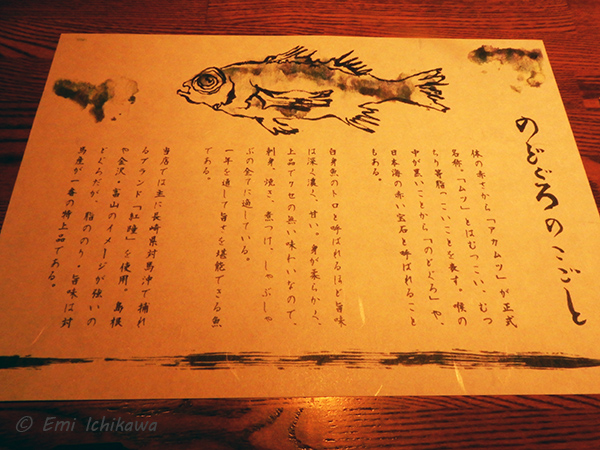 のどぐろのこごと
体の赤さから「アカムツ」が正式
名称。「ムツ」とはむつっこい、むつ
ちり等脂っこいことを表す。喉の
中が黒いことから「のどぐろ」や、
日本海の赤い宝石と呼ばれること
もある。
白身魚のトロと呼ばれるほど旨味
は深く濃く、甘い。身が柔らかく、
上品でクセの無い味わいなので、
刺身、焼き、煮つけ、しゃぶしゃ
ぶの全てに適している。
一年を通して旨さを堪能できる魚
である。
当店では主に長崎県対馬沖で捕れ
るブランド「紅瞳」を使用。島根
や金沢・富山のイメージが強いの
どぐろだが、脂ののり・旨味は対
馬産が一番の特上品である。
© Emi Ichikawa